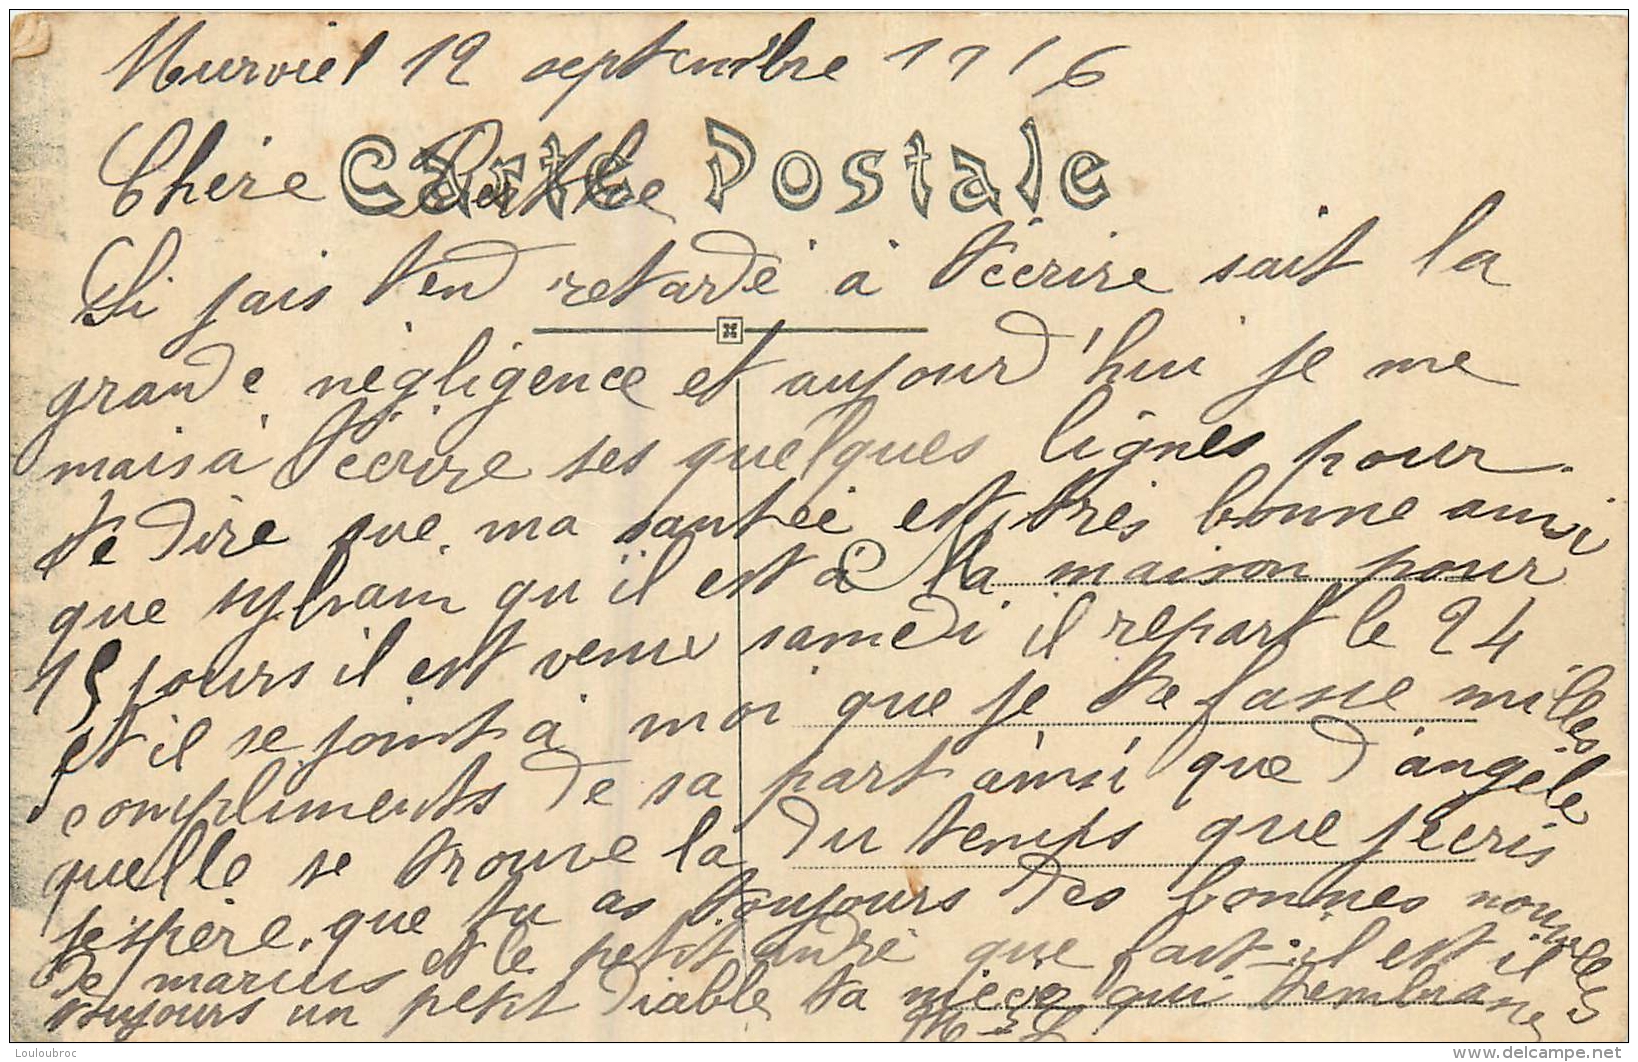 Murviel 12 septembre 1916
Carte Postale
Chère Berthe
Si jais ten retardé à técrire sait la
grande négligence et aujourd'hui je me
mais à técrire ses quelques lignes pour
te dire que ma santée est très bonne ainsi
que sylvain qu'il est à la maison pour
15 jours il est venu samedi il repart le 24
et il se joint à moi que je te fasse milles
compliments de sa part ainsi que d'angèle
quelle se trouve la du temps que jécris
jéspère que tu as toujours des bonnes nouvelles
de marius et le petit andré que fait-il est il
toujours un petit diable ta nièce qui tembrasse
Louloubroc
www.delcampe.net